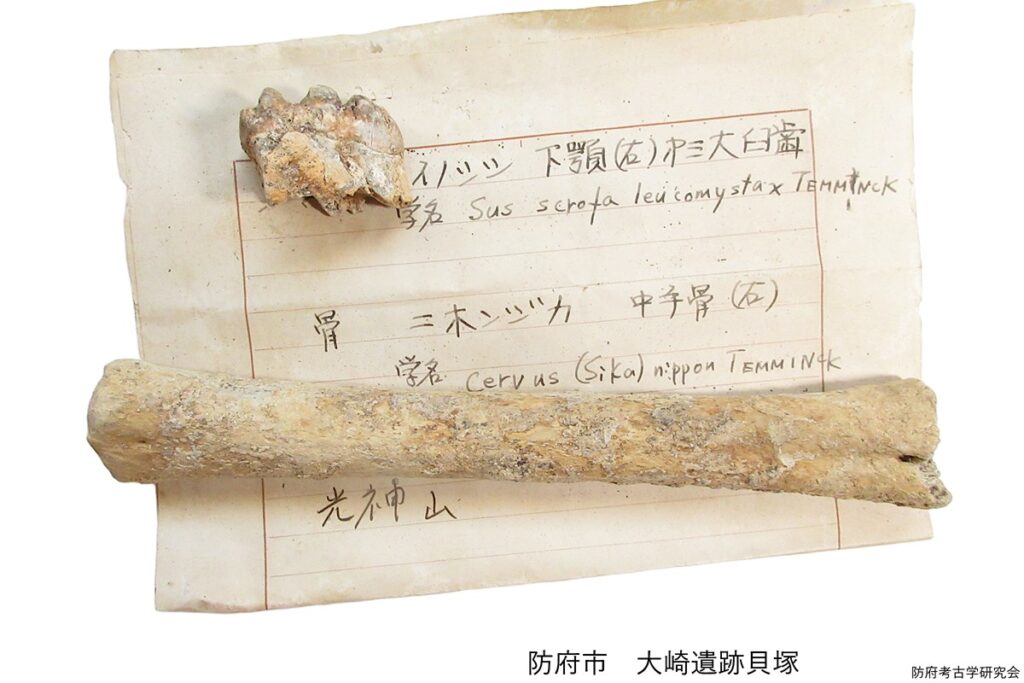 イノシシ 下顎(右)オ三大臼歯
学名 Sus scrofa leucomystax TEMMINCK
骨 ニホンジカ 中手骨(右)
学名 cervus (Sika) nippon TEMMINCK
光神山
防府市 大崎遺跡貝塚
防府考古学研究会